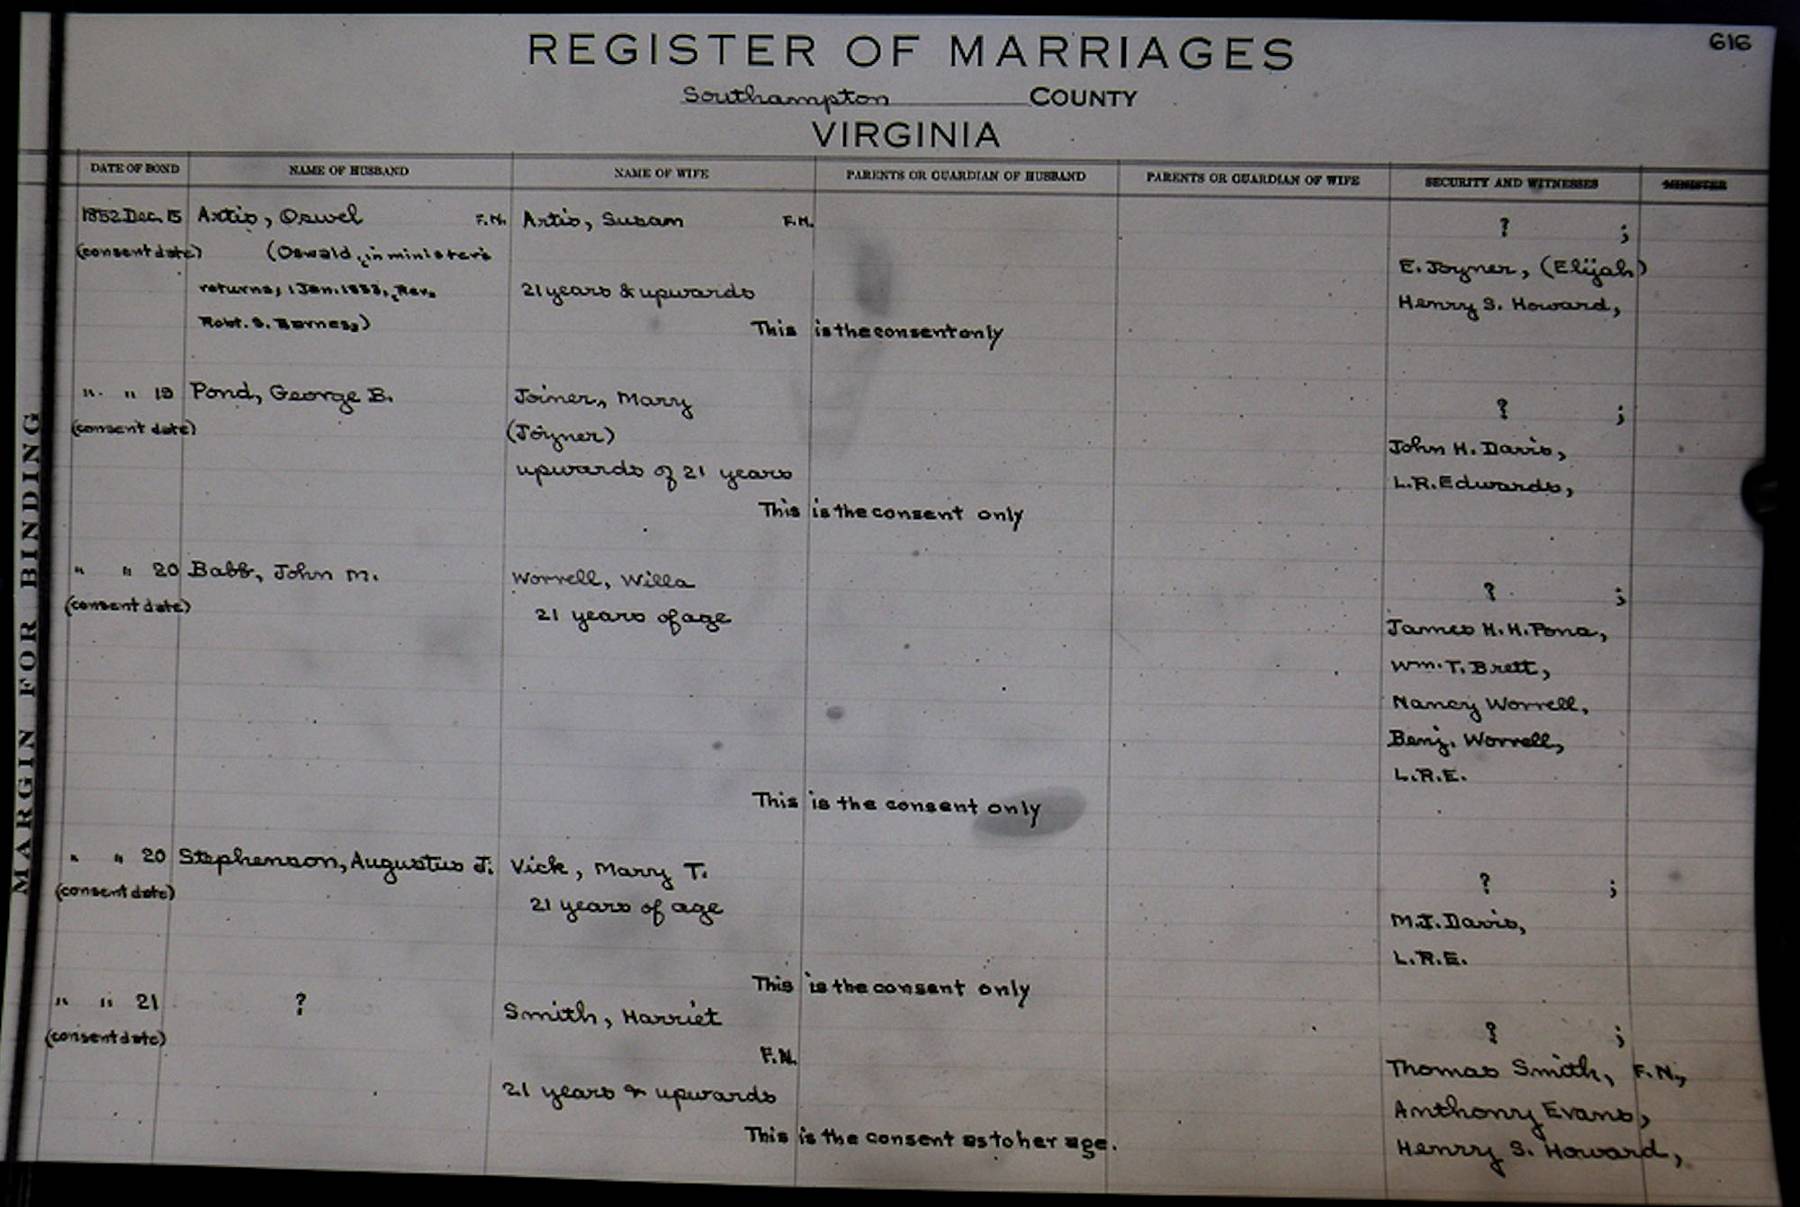 616
REGISTER OF MARRIAGES
Southampton COUNTY
VIRGINIA
MARGIN FOR BINDING
DATE OF BOND NAME OF HUSBAND NAME OF WIFE PARENTS OR GUARDIAN OF HUSBAND PARENTS OR GUARDIAN OF WIFE SECURITY AND WITNESSES MINISTER
1852 Dec. 15 Artis, Oswel F.N. Artis, Susan F.N. ? ;
(consent date) (Oswald, in minister's E. Joyner, (Elijah)
returns, 1 Jan. 1853, Rev. 21 years & upwards Henry S. Howard,
Robt. S. Barnes,) This is the consent only
" " 19 Pond, George B. Joiner, Mary ? ;
(consent date) (Joyner) John H. Davis,
upwards of 21 years L.R. Edwards,
This is the consent only
" " 20 Babb, John M. Worrell, Willa ? ;
(consent date) 21 years of age James H. H. Pond,
Wm. T. Brett,
Nancy Worrell,
Benj. Worrell,
L.R.E.
This is the consent only
" " 20 Stephenson, Augustus J. Vick, Mary T. ? ;
(consent date) 21 years of age M.J. Davis,
L.R.E.
This is the consent only
" " 21 ? Smith, Harriet ? ;
(consent date) F.N. Thomas Smith, F.N.,
21 years & upwards Anthony Evans,
This is the consent as to her age. Henry S. Howard,